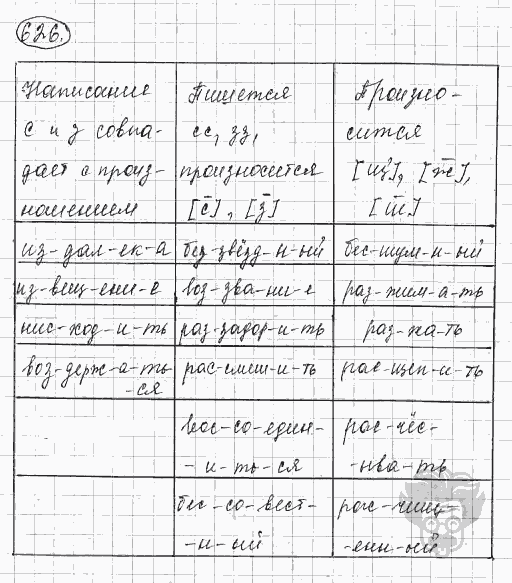 626.
Написание
с и з совпа-
дает с произ-
ношением
Пишется
сс, зз,
произносится
[с̅], [з̅]
Произно-
сится
[щ'], [ж̅],
[ш̅]
из-дал-ек-а
без-звёзд-н-ый
бес-шум-н-ый
из-вещ-ени-е
воз-зва-ни-е
раз-жим-а-ть
нис-ход-и-ть
раз-задор-и-ть
раз-жа-ть
воз-держ-а-ть-
-ся
рас-смеш-и-ть
рас-щеп-и-ть
вос-со-един-
-и-ть-ся
рас-чёс-
-ыва-ть
бес-со-вест-
-н-ый
рас-чищ-
-енн-ый